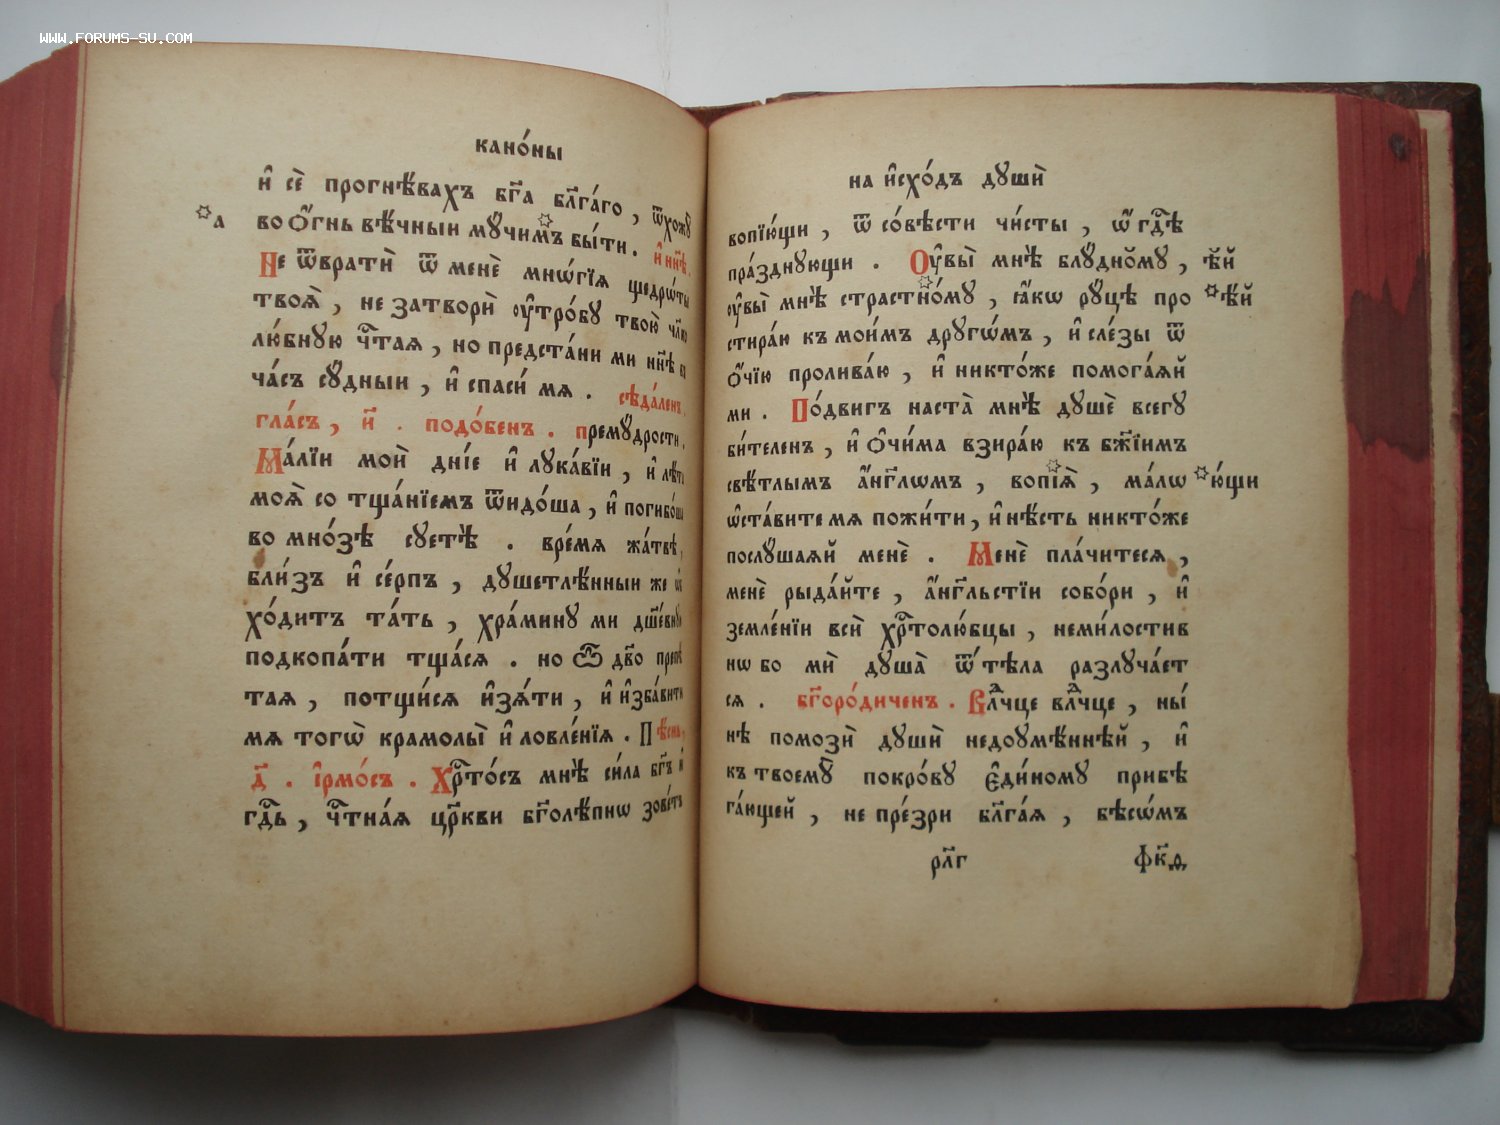 WWW.FORUMS-SU.COM
кано́ны
и҆ сѐ прогнѣ́вахъ бг҃а бл҃га́го , ѿхожꙋ
꙳а во ѻ҆́гнь вѣ́чныи мꙋ́чимъ꙳ бы́ти . и҆ нн҃ѣ .
Не ѿвратѝ ѿ менѐ мнѡ́гїѧ щедрѡ́ты
твоѧ̀ , не затворѝ ᲂу҆тро́бꙋ твою̀ чл҃ко
лю́бнꙋю чⷭ҇таѧ , но предста́ни ми нн҃ѣ в
ча́съ сꙋ́дныи , и҆ спаси́ мѧ . сѣда́ленъ ,
гла́съ , и҃ . подо́бенъ . премꙋ́дрости ,
Ма́лїи моѝ дні́е и҆ лꙋка́вїи , и҆ лѣ́та
моѧ̀ со тща́нїемъ ѿидо́ша , и҆ погибо́ша
во мно́зѣ сꙋетѣ̀ . вре́мѧ жа́твѣ ,
бли́зъ и҆ се́рпъ , дꙋшетлѣ́нныи же
хо́дитъ та́ть , хра́минꙋ ми дш҃е́внꙋ
подкопа́ти тща́сѧ . но ѽ дв҃о препѣ
таѧ , потщи́сѧ и҆з̾ѧ́ти , и҆ и҆зба́вити
мѧ тогѡ̀ крамолы̀ и҆ ловле́нїѧ . Пѣ́снь ,
д҃ . і҆рмо́съ . Хрⷭ҇то́съ мнѣ̀ си́ла бг҃ъ и҆
гдⷭ҇ь , чⷭ҇тна́ѧ цр҃кви бг҃олѣ́пнѡ зове́тъ
на и҆схо́дъ дꙋшѝ
вопїю́щи , ѿ со́вѣсти чи́сты , ѡ҆ гдⷭ҇ѣ
пра́зднꙋющи . Оу҆вы̀ мнѣ̀ блꙋ́дно́мꙋ , ѣ́й
ᲂу҆вы̀ мнѣ̀ страстно́мꙋ꙳ , ꙗ҆́кѡ рꙋ́цѣ про ꙳ѣ́й
стира́ю къ мои́мъ дрꙋгѡ́мъ , и҆ сле́зы ѿ
ѻ҆́чїю пролива́ю , и҆ никто́же помога́ѧй
ми . По́двигъ наста̀ мнѣ̀ дꙋшѐ всегꙋ
би́теленъ , и҆ ѻ҆чи́ма взира́ю къ бж҃іимъ
свѣ́тлымъ а҆́нг҃лѡмъ , вопїѧ̀꙳ , ма́лѡ ꙳ю́щи
ѡ҆ста́вите мѧ пожи́ти , и҆ нѣ́сть никто́же
послꙋ́шаѧй менѐ . Менѐ пла́читесѧ ,
менѐ рыда́йте , а҆́нг҃льстїи собо́ри , и҆
земле́нїи всѝ хрⷭ҇толю́бцы , неми́лостив
нѡ бо мѝ дꙋша̀ ѿ тѣ́ла разлꙋча́ет
сѧ . бг҃оро́диченъ . Влⷣчце влⷣчце , ны́
нѣ помозѝ дꙋшѝ недоꙋмѣ́ннѣй , и҆
къ твоемꙋ̀ покро́вꙋ є҆ди́номꙋ прибѣ
га́ющей , не пре́зри бл҃га́ѧ , бѣсѡ́мъ
рл҃г фк҃ѳ